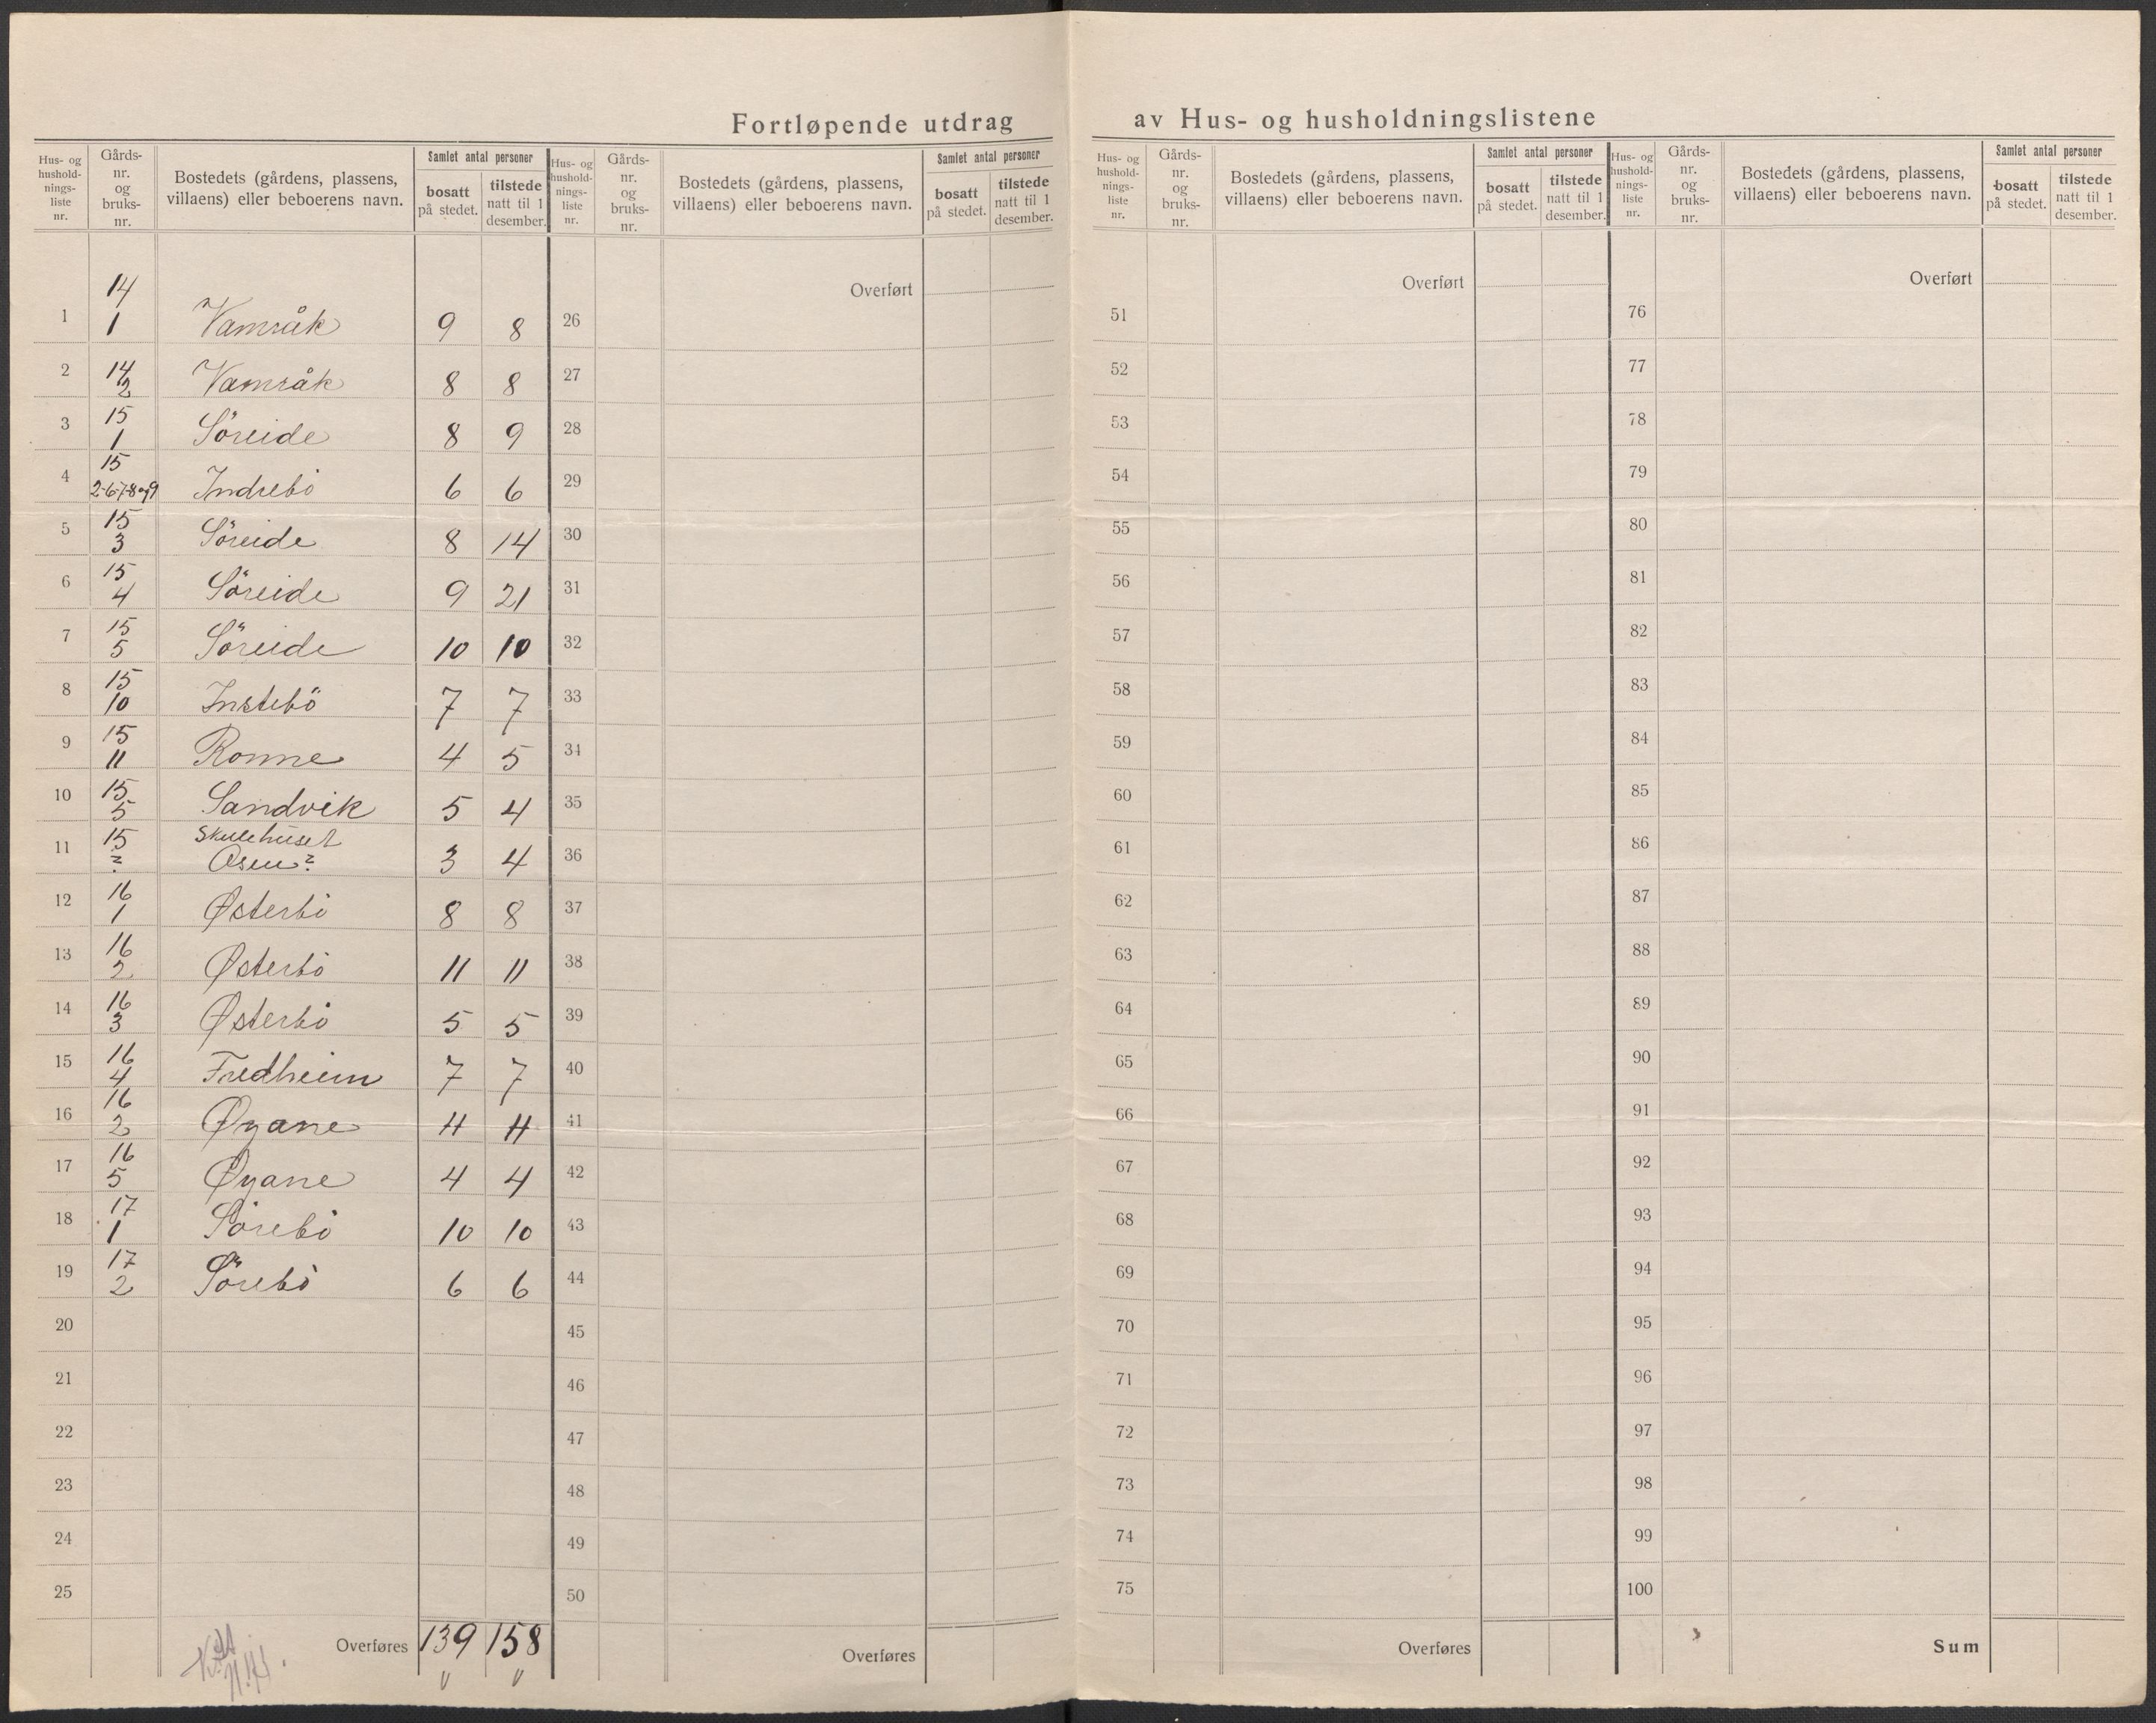 Fortløpende utdrag av Hus- og husholdningslistene
Hus- og hushold-nings-liste nr. | Gårds-nr. og bruks-nr. | Bostedets (gårdens, plassens, villaens) eller beboerens navn. | Samlet antal personer | bosatt på stedet. | tilstede natt til 1 desember.
Hus- og hushold-nings-liste nr. | Gårds-nr. og bruks-nr. | Bostedets (gårdens, plassens, villaens) eller beboerens navn. | Samlet antal personer | bosatt på stedet. | tilstede natt til 1 desember.
Hus- og hushold-nings-liste nr. | Gårds-nr. og bruks-nr. | Bostedets (gårdens, plassens, villaens) eller beboerens navn. | Samlet antal personer | bosatt på stedet. | tilstede natt til 1 desember.
Hus- og hushold-nings-liste nr. | Gårds-nr. og bruks-nr. | Bostedets (gårdens, plassens, villaens) eller beboerens navn. | Samlet antal personer | bosatt på stedet. | tilstede natt til 1 desember.
1 14/1 Vamråk 9 8
2 14/2 Vamråk 8 8
3 15/1 Söreide 8 9
4 15/2-6-7-8og9 Indrebö 6 6
5 15/3 Söreide 8 14
6 15/4 Söreide 9 21
7 15/5 Söreide 10 10
8 15/10 Instebö 7 7
9 15/11 Ronne 4 5
10 15/5 Sandvik 5 4
11 15/? Skulehuset Osen? 3 4
12 16/1 Østerbö 8 8
13 16/2 Østerbö 11 11
14 16/3 Østerbö 5 5
15 16/4 Fredheim 7 7
16 16/2 Øyane 11 11
17 16/5 Øyane 4 4
18 17/1 Sörebö 10 10
19 17/2 Sörebö 6 6
20
21
22
23
24
25
Overføres 139 158
Overført
26
27
28
29
30
31
32
33
34
35
36
37
38
39
40
41
42
43
44
45
46
47
48
49
50
Overføres
Overført
51
52
53
54
55
56
57
58
59
60
61
62
63
64
65
66
67
68
69
70
71
72
73
74
75
Overføres
Overført
76
77
78
79
80
81
82
83
84
85
86
87
88
89
90
91
92
93
94
95
96
97
98
99
100
Sum